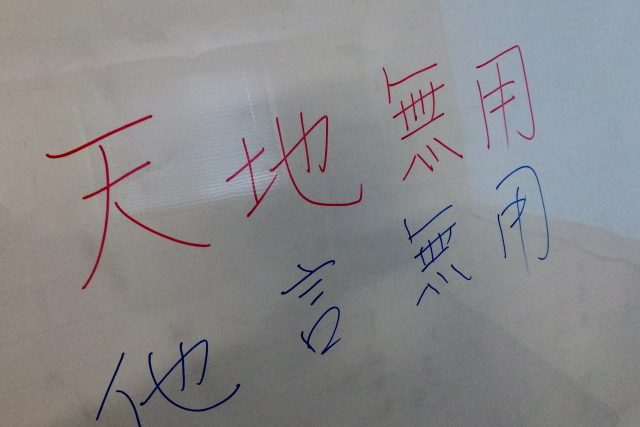 天地無用
他言無用